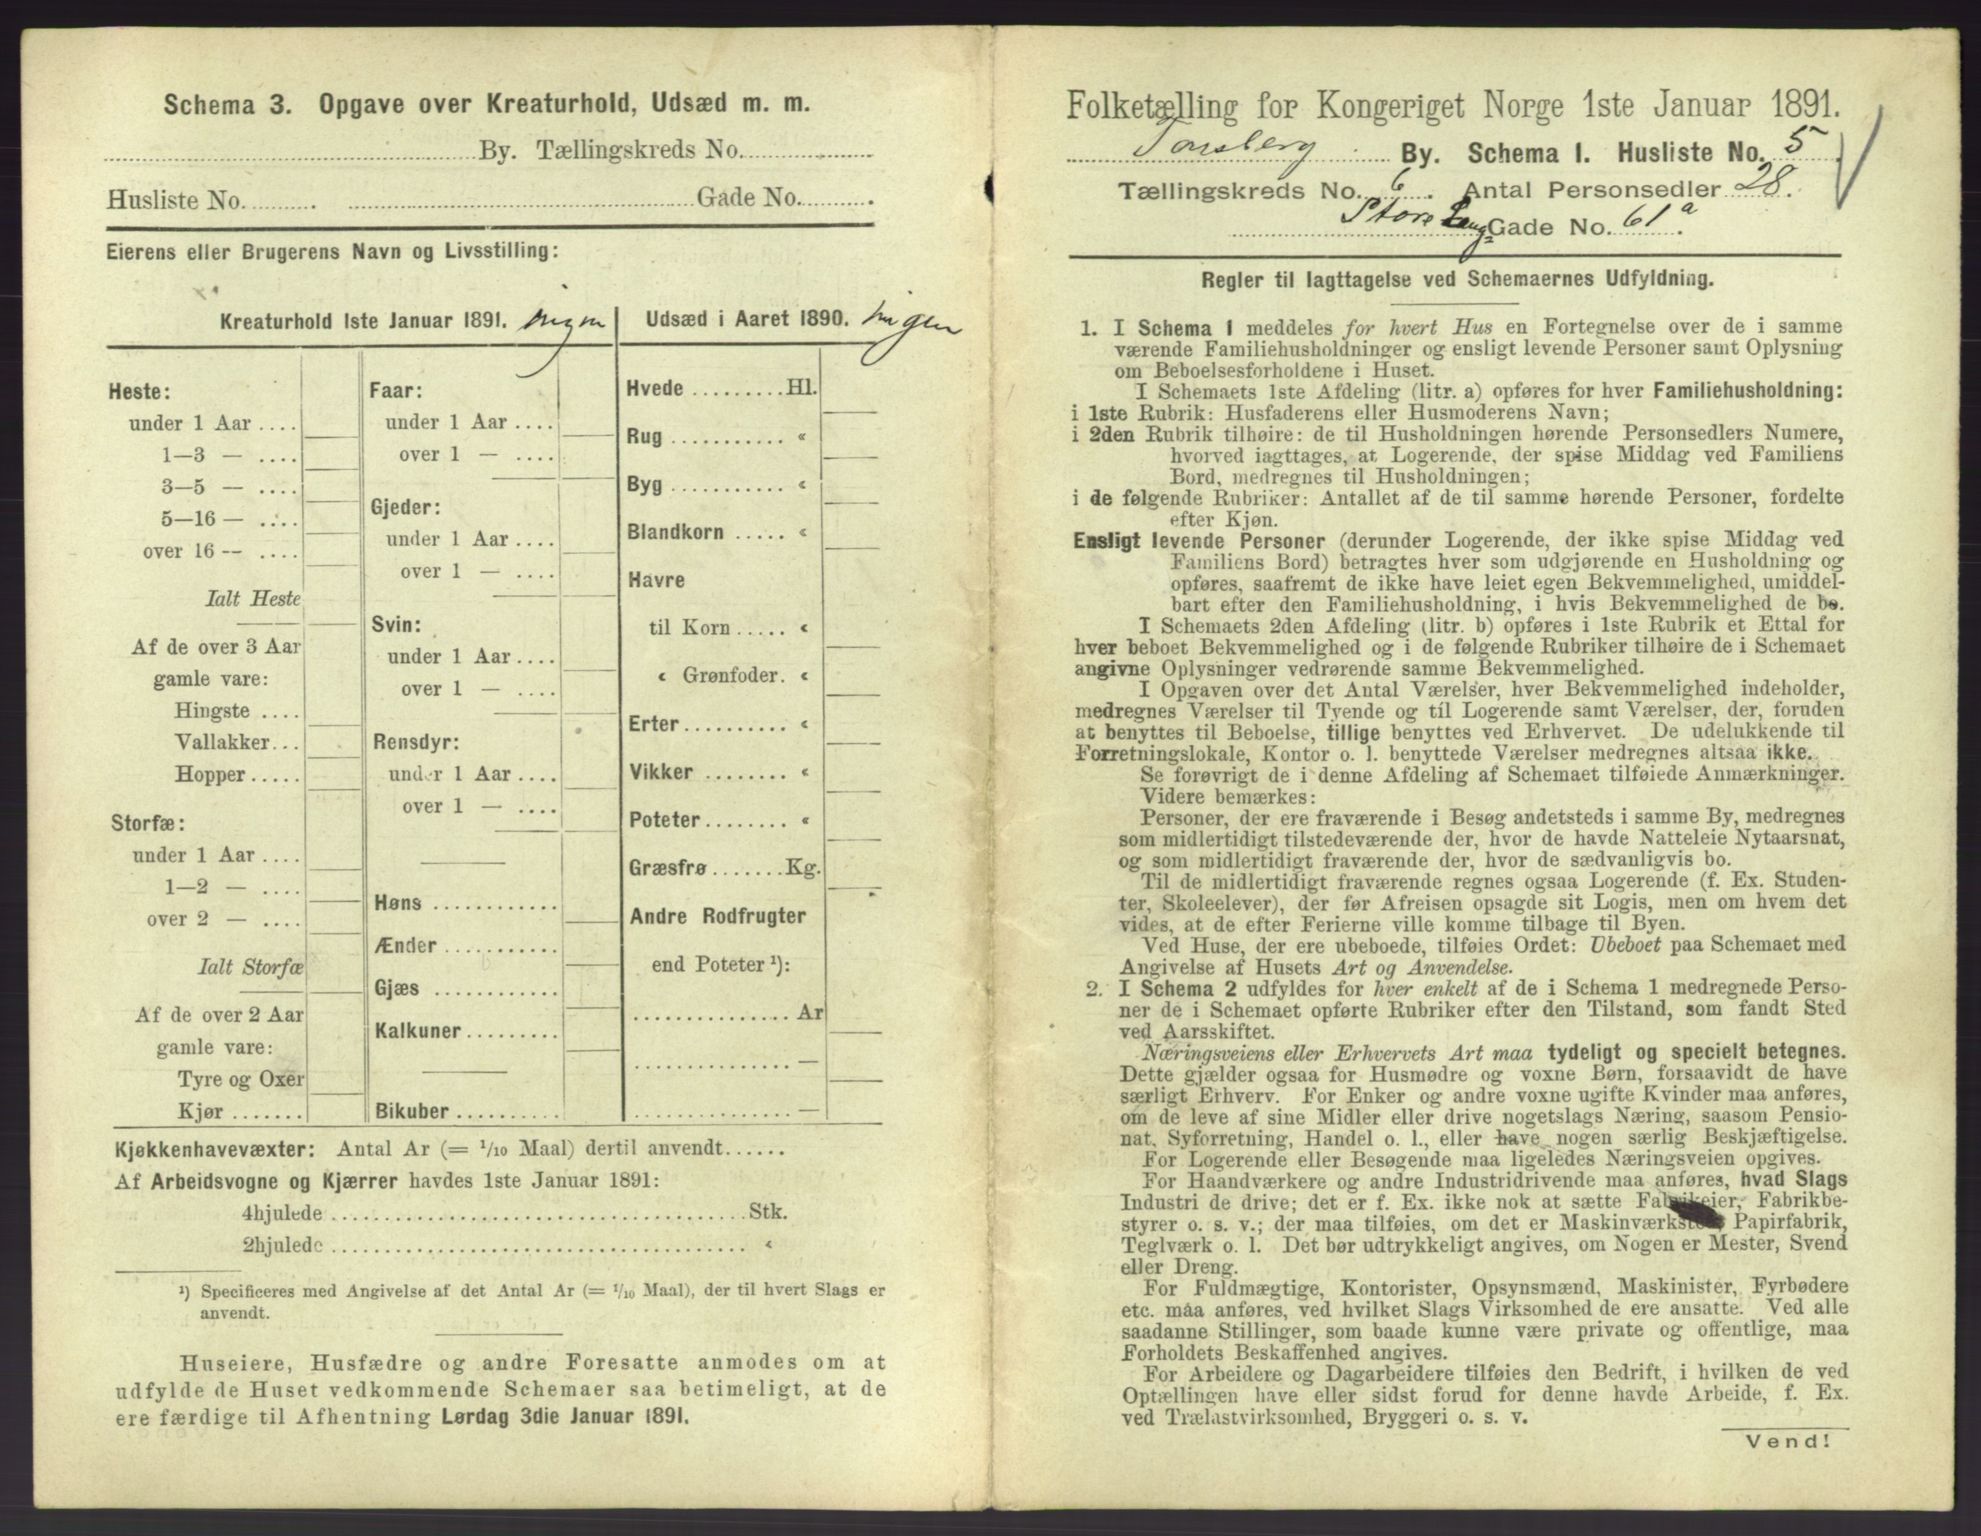 Schema 3. Opgave over Kreaturhold, Udsæd m. m.
By. Tællingskreds No.
Husliste No. Gade No.
Eierens eller Brugerens Navn og Livsstilling:
Kreaturhold 1ste Januar 1891. ingen
Udsæd i Aaret 1890. ingen
Heste:
under 1 Aar ....
1—3 — ....
3—5 — ....
5—16 — ....
over 16 -- ....
Ialt Heste
Af de over 3 Aar
gamle vare:
Hingste ....
Vallakker...
Hopper.....
Storfæ:
under 1 Aar ....
1—2 — ....
over 2 — ....
Ialt Storfæ
Af de over 2 Aar
gamle vare:
Tyre og Oxer
Kjør .......
Faar:
under 1 Aar ....
over 1 — ....
Gjeder:
under 1 Aar ....
over 1 — ....
Svin:
under 1 Aar ....
over 1 — ....
Rensdyr:
under 1 Aar ....
over 1 — ....
Høns ............
Ænder ...........
Gjæs ............
Kalkuner.........
Bikuber ..........
Hvede .........Hl.
Rug ........... «
Byg ........... «
Blandkorn ..... «
Havre
til Korn ..... «
« Grønfoder. «
Erter .......... «
Vikker ........ «
Poteter........ «
Græsfrø .......Kg.
Andre Rodfrugter
end Poteter ¹):
............... Ar
............... —
............... —
Kjøkkenhavevæxter: Antal Ar (= 1/10 Maal) dertil anvendt......
Af Arbeidsvogne og Kjærrer havdes 1ste Januar 1891:
4hjulede ........................................Stk.
2hjulede ........................................ «
¹) Specificeres med Angivelse af det Antal Ar (= 1/10 Maal), der til hvert Slags er
anvendt.
Huseiere, Husfædre og andre Foresatte anmodes om at
udfylde de Huset vedkommende Schemaer saa betimeligt, at de
ere færdige til Afhentning Lørdag 3die Januar 1891.
Folketælling for Kongeriget Norge 1ste Januar 1891.
Tønsberg By. Schema 1. Husliste No. 5
Tællingskreds No. 6. Antal Personsedler 28.
Store Lang- Gade No. 61 a
Regler til Iagttagelse ved Schemaernes Udfyldning.
1. I Schema 1 meddeles for hvert Hus en Fortegnelse over de i samme
værende Familiehusholdninger og ensligt levende Personer samt Oplysning
om Beboelsesforholdene i Huset.
I Schemaets 1ste Afdeling (litr. a) opføres for hver Familiehusholdning:
i 1ste Rubrik: Husfaderens eller Husmoderens Navn;
i 2den Rubrik tilhøire: de til Husholdningen hørende Personsedlers Numere,
hvorved iagttages, at Logerende, der spise Middag ved Familiens
Bord, medregnes til Husholdningen;
i de følgende Rubriker: Antallet af de til samme hørende Personer, fordelte
efter Kjøn.
Ensligt levende Personer (derunder Logerende, der ikke spise Middag ved
Familiens Bord) betragtes hver som udgjørende en Husholdning og
opføres, saafremt de ikke have leiet egen Bekvemmelighed, umiddel-
bart efter den Familiehusholdning, i hvis Bekvemmelighed de bo.
I Schemaets 2den Afdeling (litr. b) opføres i 1ste Rubrik et Ettal for
hver beboet Bekvemmelighed og i de følgende Rubriker tilhøire de i Schemaet
angivne Oplysninger vedrørende samme Bekvemmelighed.
I Opgaven over det Antal Værelser, hver Bekvemmelighed indeholder,
medregnes Værelser til Tyende og til Logerende samt Værelser, der, foruden
at benyttes til Beboelse, tillige benyttes ved Erhvervet. De udelukkende til
Forretningslokale, Kontor o. l. benyttede Værelser medregnes altsaa ikke.
Se forøvrigt de i denne Afdeling af Schemaet tilføiede Anmærkninger.
Videre bemærkes:
Personer, der ere fraværende i Besøg andetsteds i samme By, medregnes
som midlertidigt tilstedeværende der, hvor de havde Natteleie Nytaarsnat,
og som midlertidigt fraværende der, hvor de sædvanligvis bo.
Til de midlertidigt fraværende regnes ogsaa Logerende (f. Ex. Studen-
ter, Skoleelever), der før Afreisen opsagde sit Logis, men om hvem det
vides, at de efter Ferierne ville komme tilbage til Byen.
Ved Huse, der ere ubeboede, tilføies Ordet: Ubeboet paa Schemaet med
Angivelse af Husets Art og Anvendelse.
2. I Schema 2 udfyldes for hver enkelt af de i Schema 1 medregnede Perso-
ner de i Schemaet opførte Rubriker efter den Tilstand, som fandt Sted
ved Aarsskiftet.
Næringsveiens eller Erhvervets Art maa tydeligt og specielt betegnes.
Dette gjælder ogsaa for Husmødre og voxne Børn, forsaavidt de have
særligt Erhverv. For Enker og andre voxne ugifte Kvinder maa anføres,
om de leve af sine Midler eller drive nogetslags Næring, saasom Pensio-
nat, Syforretning, Handel o. l., eller have nogen særlig Beskjæftigelse.
For Logerende eller Besøgende maa ligeledes Næringsveien opgives.
For Haandværkere og andre Industridrivende maa anføres, hvad Slags
Industri de drive; det er f. Ex. ikke nok at sætte Fabrikeier, Fabrikbe-
styrer o. s. v.; der maa tilføies, om det er Maskinværksted, Papirfabrik,
Teglværk o. l. Det bør udtrykkeligt angives, om Nogen er Mester, Svend
eller Dreng.
For Fuldmægtige, Kontorister, Opsynsmænd, Maskinister, Fyrbødere
etc. maa anføres, ved hvilket Slags Virksomhed de ere ansatte. Ved alle
saadanne Stillinger, som baade kunne være private og offentlige, maa
Forholdets Beskaffenhed angives.
For Arbeidere og Dagarbeidere tilføies den Bedrift, i hvilken de ved
Optællingen have eller sidst forud for denne havde Arbeide, f. Ex.
ved Trælastvirksomhed, Bryggeri o. s. v.
Vend!